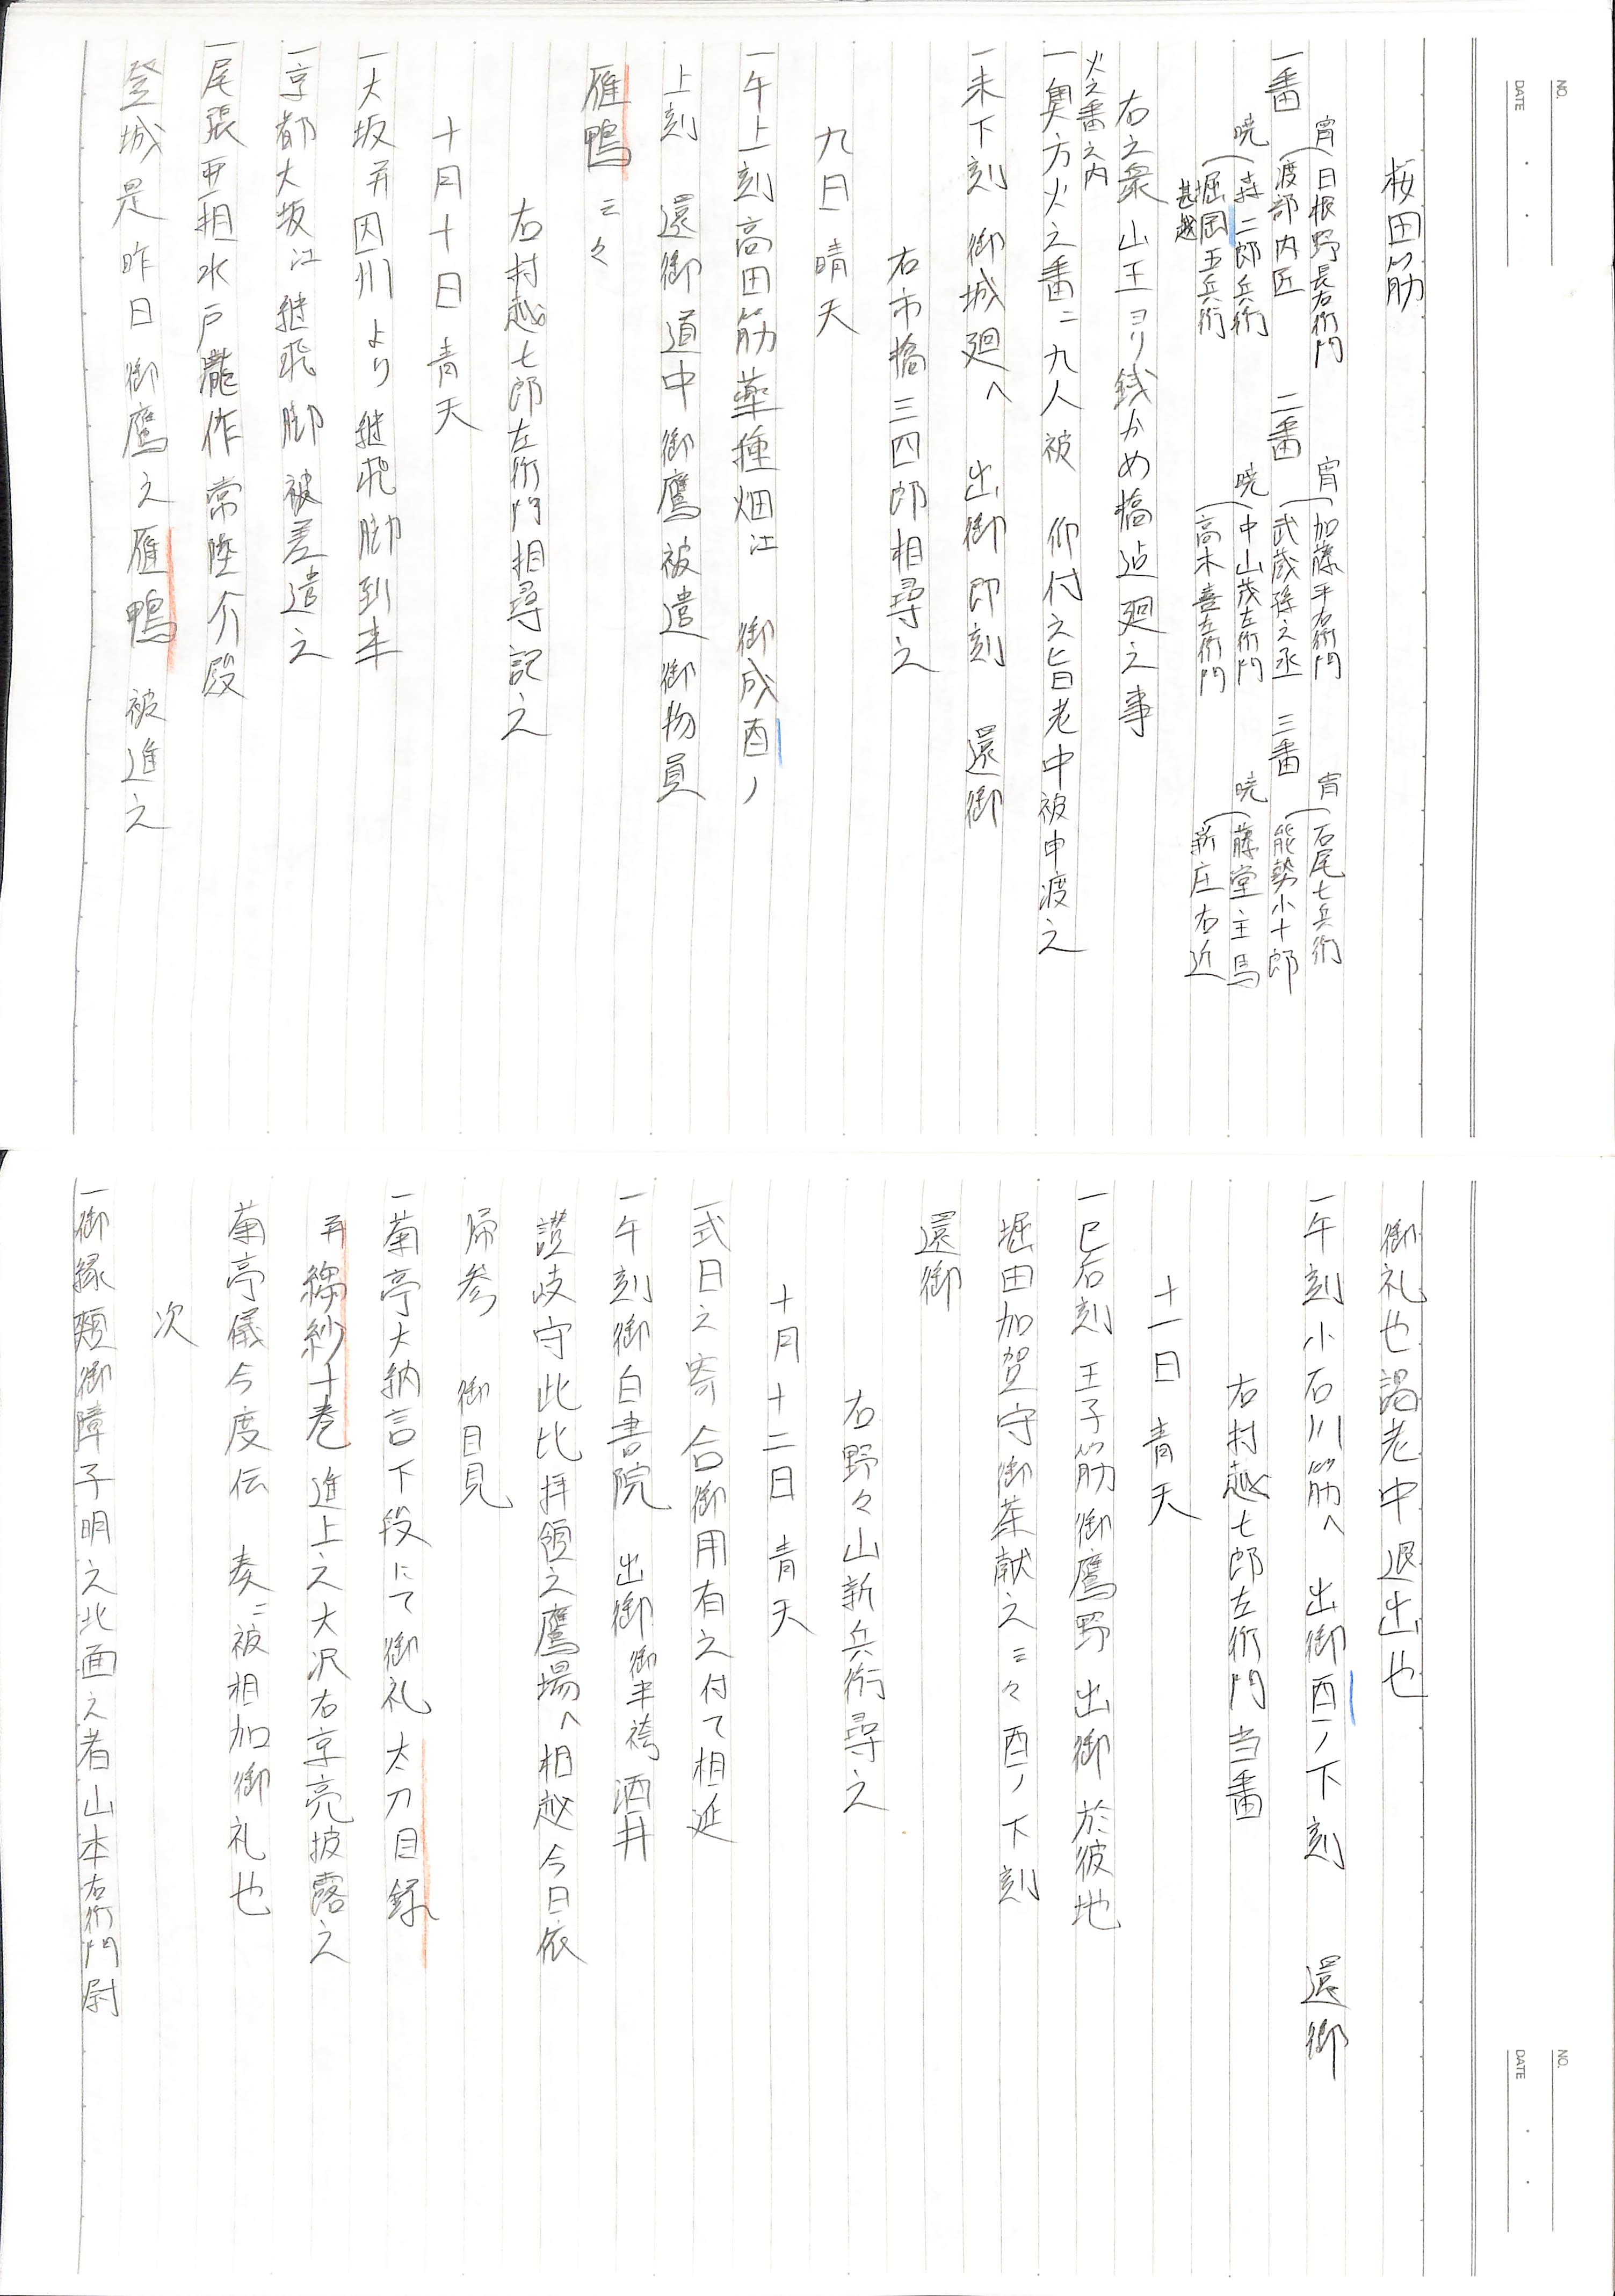 NO.
DATE
桜田筋
宵 日根野長右衛門
一番 渡部内匠
暁 森二郎兵衛
堀田五兵衛
甚越
宵 加藤平右衛門
二番 武蔵孫之丞
暁 中山茂左衛門
高木善左衛門
宵 石尾七兵衛
三番 能勢小十郎
暁 藤堂主馬
新庄右近
右之衆山王ヨリ銭かめ橋迠廻之事
火之番之内
一奥方火之番ニ九人被 仰付之旨老中被申渡之
一未下刻 御城廻へ 出御即刻 還御
右市橋三四郎相尋之
九日 晴天
一午上刻高田筋薬種畑江 御成酉ノ
上刻 還御道中御鷹被遣御物員
雁鴨云々
右村越七郎左衛門相尋記之
十月十日 青天
一大坂并因州より継飛脚到来
一京都大坂江継飛脚被差遣之
一尾張亜相水戸龍作常陸介殿
登城是昨日御鷹之雁鴨 被進之
NO.
DATE
御礼也謁老中退出也
一午刻小石川筋へ 出御酉ノ下刻 還御
右村越七郎左衛門当番
十一日 青天
一巳后刻 王子筋御鷹野出御 於彼地
堀田加賀守御茶献之云々酉ノ下刻
還御
右野々山新兵衛尋之
十月十二日 青天
一式日之寄合御用有之付て相延
一午刻御白書院 出御御半袴 酒井
讃岐守此比拝領之鷹場へ相越今日依
帰参 御目見
一菊亭大納言下段にて御礼太刀目録
并繻紗十巻進上之大沢右京亮披露之
菊亭儀今度伝 奏ニ被相加御礼也
次
一御縁頬御障子明之北面之者山本右衛門尉